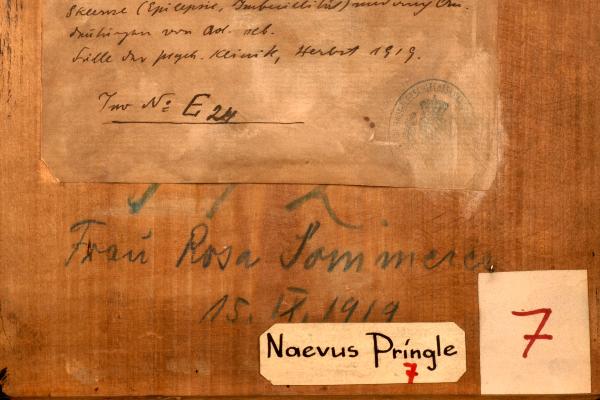 Sklerose (Epilepsie, Imbecillität) und ung An-
deutungen von Ad. seb.
Fälle der psych. Klinik, Herbst 1919.
Inv No: E 24
Frau Rosa Sommerer
15. IX. 1919
Naevus Pringle
7
7